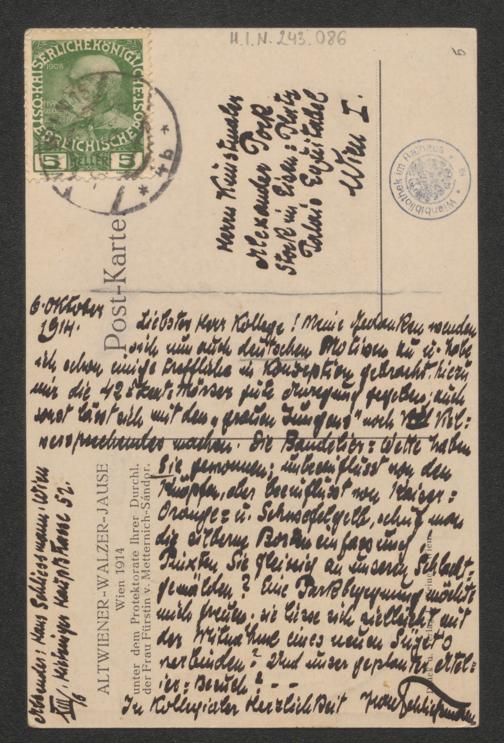 H.I.N. 243.086
5
K.K. ÖSTERREICHISCHE POST
5 HELLER 5
1908
Wienbibliothek im Rathaus
Post-Karte
Herrn Kunstmaler
Alexander Pock
Stock im Eisen-Platz
Palais Equitabel
Wien I.
6. Oktober
1914.
Liebster Herr Kollege! Meine Gedanken wenden
sich nun auch deutschen Motiven zu u. habe
ich schon einige treffliche in Konzeption gebracht. Hiezu
mir die 42 Mörser gute Anregung gegeben; auch
sonst lässt sich mit den „grauen Jungens" noch Viel-
versprechendes machen. Die Bandelier-Wette haben
Sie gewonnen; unbeeinflusst von den
Knöpfen, aber beeinflusst von Kaiser-
Orange- u. Schwefelgelb, schuf man
die silbernen Borten einfassung
Pinxten Sie fleissig an unseren Schlacht-
gemälden? Eine Parkbegegnung möchte
mich freuen; sie liesse sich vielleicht mit
der Wahl eines neuen Sujets
verbinden? Und unser geplanter Atel-
ier-Besuch? - - -
In Kollegialer Herzlichkeit Hans Schliessmann
Absender: Hans Schliessmann, Wien
XIII/6, Hietzinger Hauptstrasse 52.
ALTWIENER-WALZER-JAUSE
Wien 1914
unter dem Protektorate Ihrer Durchl.
der Frau Fürstin v. Metternich-Sándor.